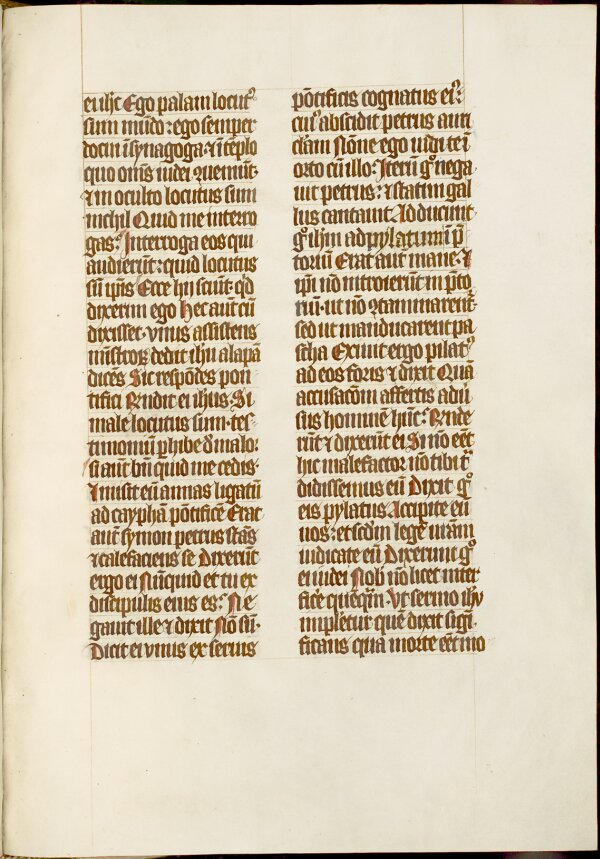 ei ihc̄ Ego palam locutꝰ
sum mūdo: ego semper
docui ī synagoga ⁊ ī tēplo
quo om̄s iudei ꝯueniūt·
⁊ in occulto locutus sum
nichil Quid me interro
gas? Interroga eos qui
audierūt: quid locutus
sū ip̄is Ecce hij sciūt qd̄
dixerim ego Hec aūt cū
dixisset· vnus assistens
mīstroꝝ dedit ihū alapā
dicēs Sic respōdes pon
tifici Rn̄dit ei ihūs Si
male locutus sum· tes
timonium ꝑhibe d̄ malo·
si aūt bn̄ quid me cedis·
Et misit eū annas ligatū
ad cayphā pōtificē Erat
aūt symon petrus stās
⁊ calefaciens se Dixerūt
ergo ei Nūquid et tu ex
discipulis eius es? Ne
gauit ille ⁊ dixit Nō sū·
Dicit ei vnus ex seruis
pōtificis cognatus eiꝰ·
cuiꝰ abscidit petrus auri
clam Nōne ego uidi te ī
orto cū illo: Iterū gͦ nega
uit petrus: ⁊ statim gal
lus cantauit Adducunt
gͦ ihm̄ ad pylatum ī p̄
toriū Erat aūt mane· Et
ip̄i nō introierūt in p̄to
riū· ut nō ꝯtaminarent᷑
sed ut manducarent pa
scha Exiuit ergo pilatꝰ
ad eos foris ⁊ dixit Quā
accusacōm affertis aduͥ
sus hominē hūc? Rn̄de
rūt ⁊ dixerūt ei Si nō eēt
hic malefactor nō tibi tͣ
didissemus eū Dixit gͦ
eis pylatus Accipite eū
uos: et scd̄m legē urām
iudicate eū Dixerunt gͦ
ei iudei Nob̄ nō licet inter
fic̄e quēqͣm· Vt sermo ihū
impleret᷑ quē dixit signi
ficans qua morte eēt mo